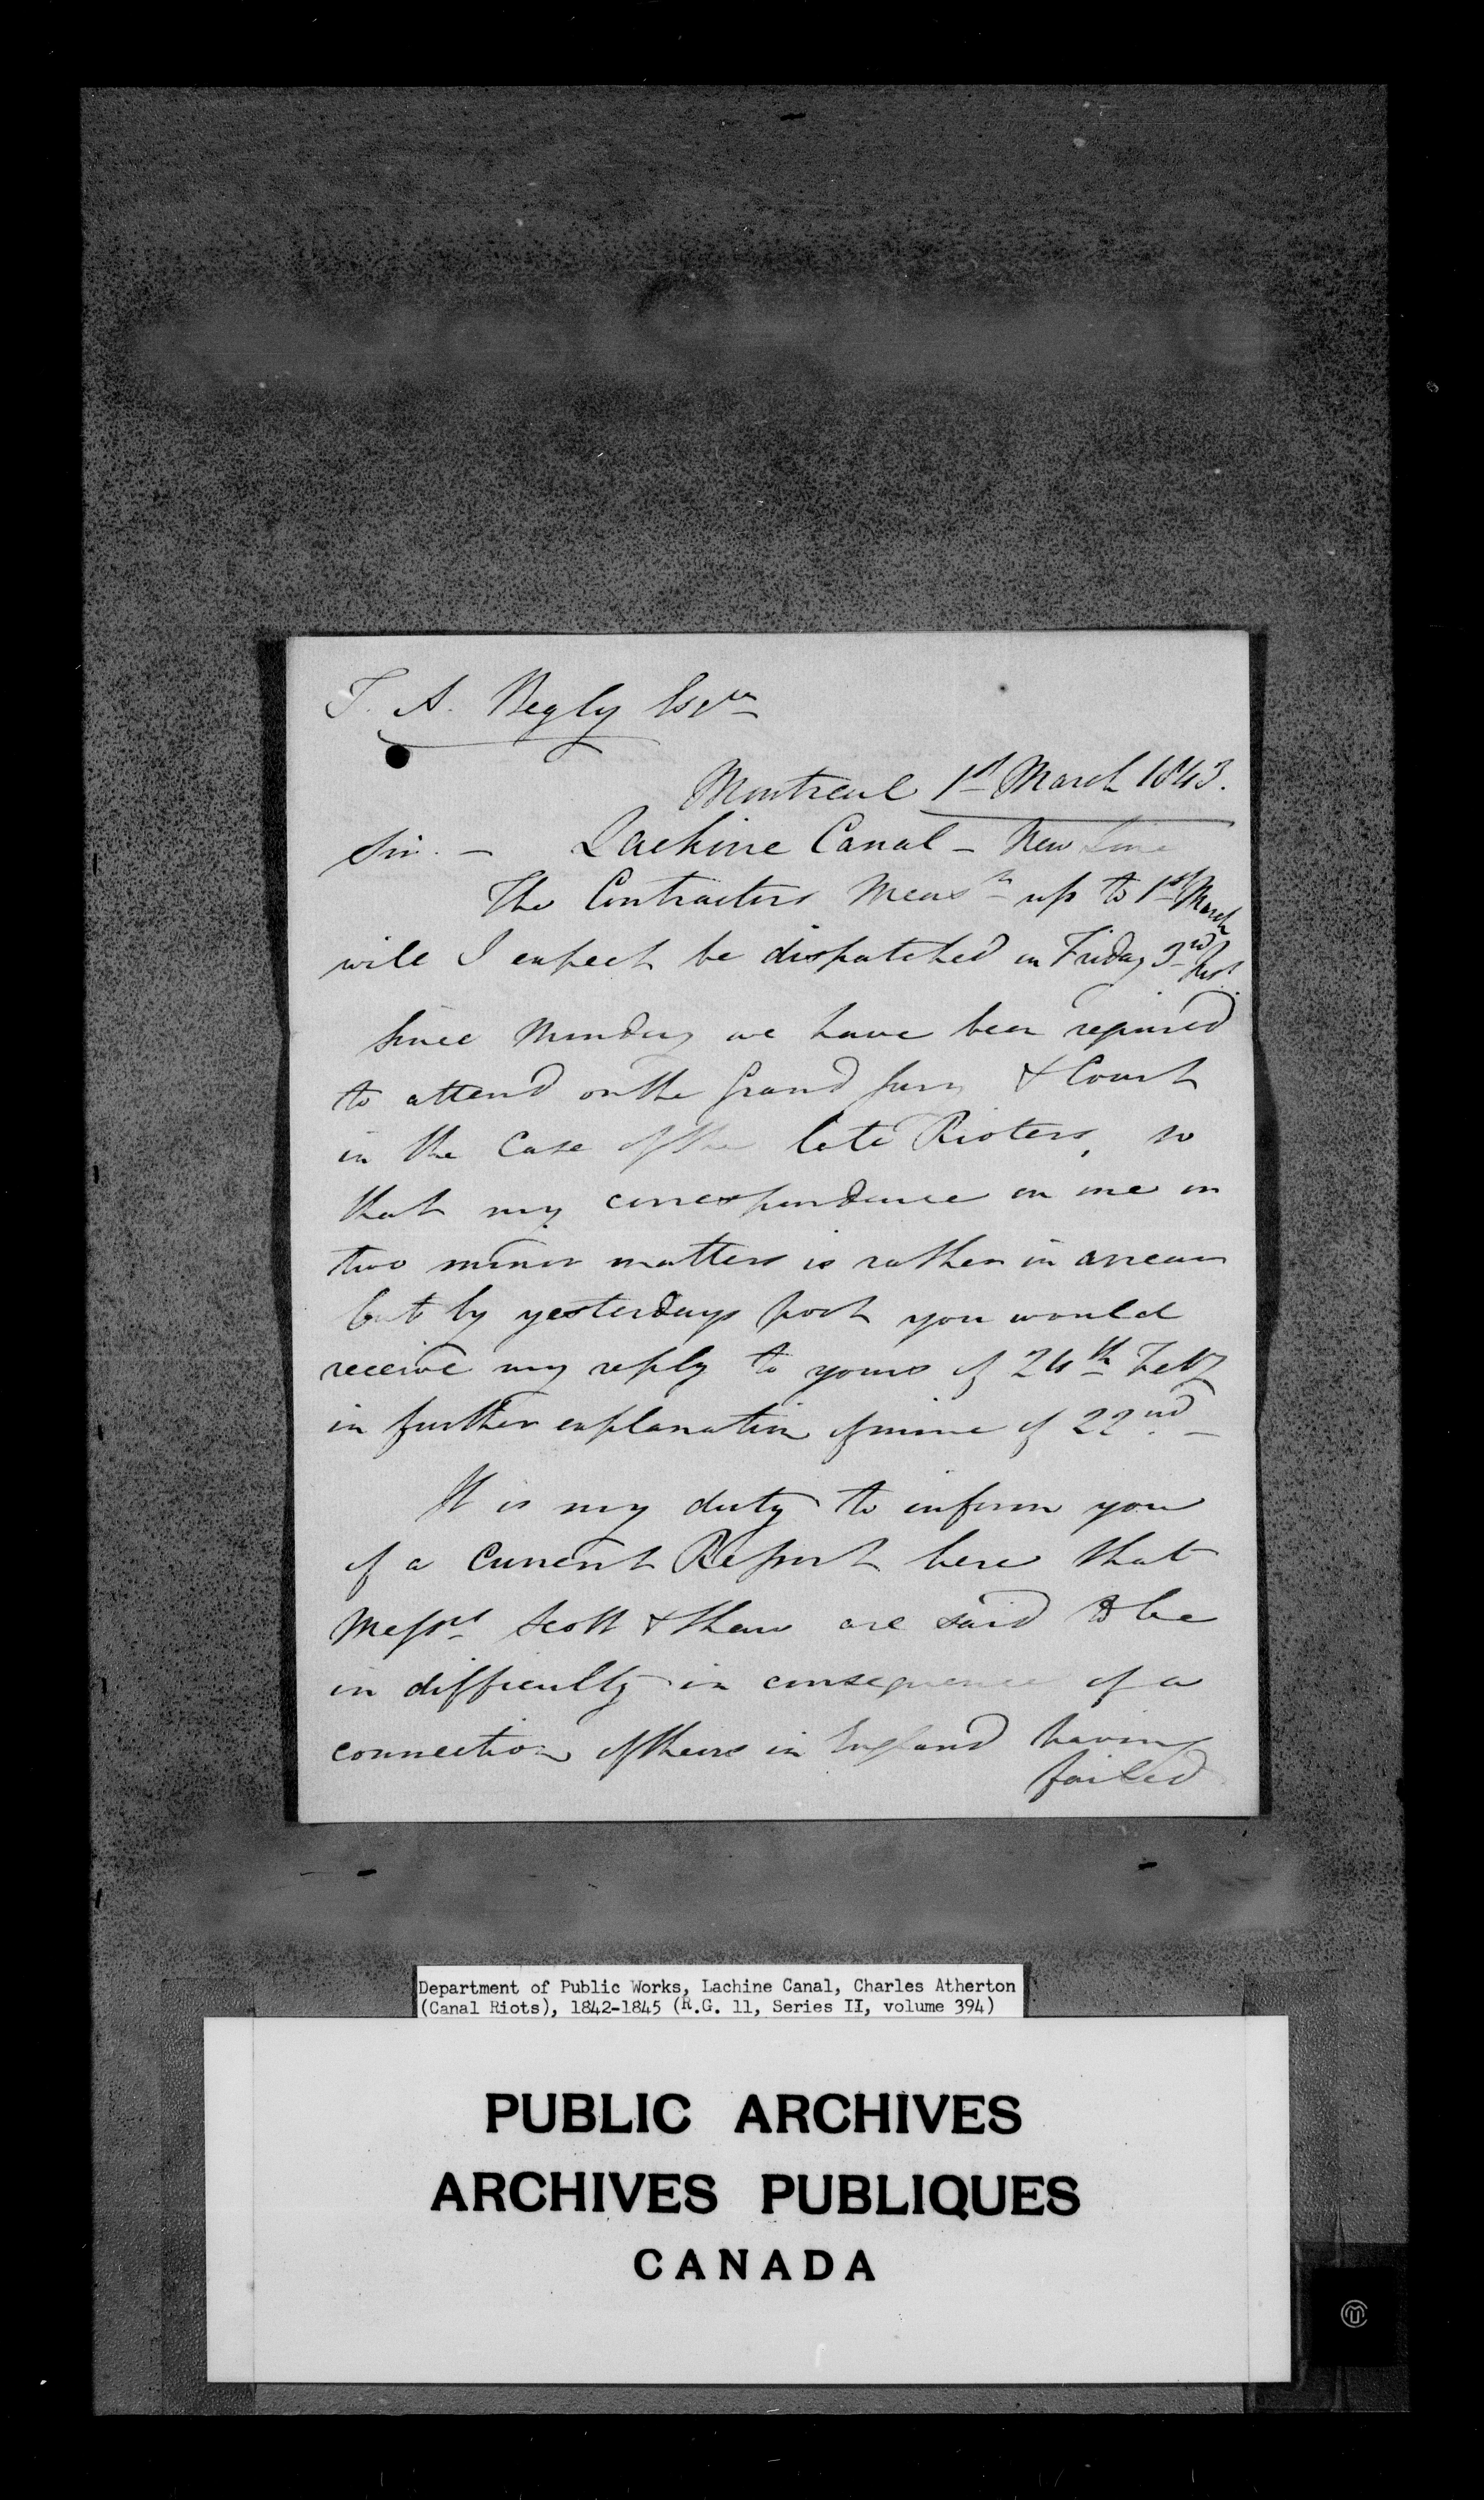 T. A. Begly Esqre
Montreal 1st March 1843.
Sir. — Lachine Canal — New Line
The Contractors Meast up to 1st March
will I expect be dispatched on Friday 3rd Inst
Since Monday we have been required
to attend on the Grand Jury & Court
in the Case of the late Rioters, so
that my correspondence on one or
two minor matters is rather in arrear
but by yesterdays post you would
receive my reply to yours of 24th Feby
in further explanation of mine of 22nd —
It is my duty to inform you
of a Current Report here that
Messrs Scott & Shaw are said to be
in difficulty in consequence of a
connection of theirs in England having
failed
Department of Public Works, Lachine Canal, Charles Atherton
(Canal Riots), 1842-1845 (R.G. 11, Series II, volume 394)
PUBLIC ARCHIVES
ARCHIVES PUBLIQUES
CANADA